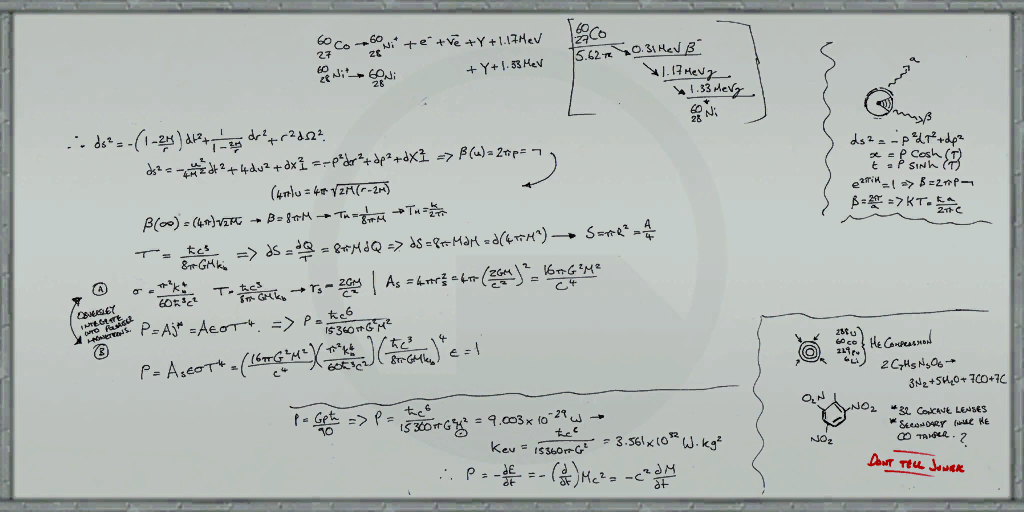 ⁶⁰₂₇Co → ⁶⁰₂₈Ni* + e⁻ + v̄e + γ + 1.17MeV
⁶⁰₂₈Ni* → ⁶⁰₂₈Ni + γ + 1.33MeV
⁶⁰₂₇Co
0.31MeV β⁻
1.17MeVγ
1.33MeVγ
⁶⁰₂₈Ni
∴ ds² = -(1-2M/r)dt² + 1/(1-2M/r) dr² + r²dΩ².
= -ρ²dτ² + dρ² + dX²⊥ => β(u) = 2πρ =
(4π)u = 4π√2M(r-2M)
β(∞) = (4π)√2M → β = 8πM → Tʜ = 1/8πM → Tʜ = k/2π
T = ħc³/8πGMk_b => dS = dQ/T = 8πMdQ => dS = 8πMdM = d(4πM²) → S = πR² = A/4
Ⓐ σ = π²k_b⁴/60ħ³c² T = ħc³/8πGMk_b → rs = 2GM/c² | As = 4πrs² = 4π(2GM/c²)² = 16πG²M²/c⁴
INTEGRATE
INTO
Ⓑ
P = Aj* = AεσT⁴. => P = ħc⁶/15360πG²M²
P = AsεσT⁴ = (16πG²M²/c⁴)(π²k_b⁴/60ħ³c²)(ħc³/8πGMk_b)⁴ ε = 1
P = Gρħ/90 => P = ħc⁶/15360πG²M² = 9.003 x 10⁻²⁹W →
Kev = ħc⁶/15360πG² = 3.561 x 10³²W.kg²
∴ P = -dE/dt = -(d/dt)Mc² = -c² dM/dt
α
β
ds² = -ρ²dT² + dρ²
x = ρ cosh(T)
t = ρ sinh(T)
β = 2π/a => KT = ħa/2πc
238 U
60 CO
239 Pu
6 Li
HE COMPRESSION
2C7H5N3O6 →
3N2+5H2O+7CO+7C
O2N
NO2
NO2
*32 CONCAVE LENSES
*SECONDARY INNER HE
CO TAMPER. ?
DONT TELL JUNER